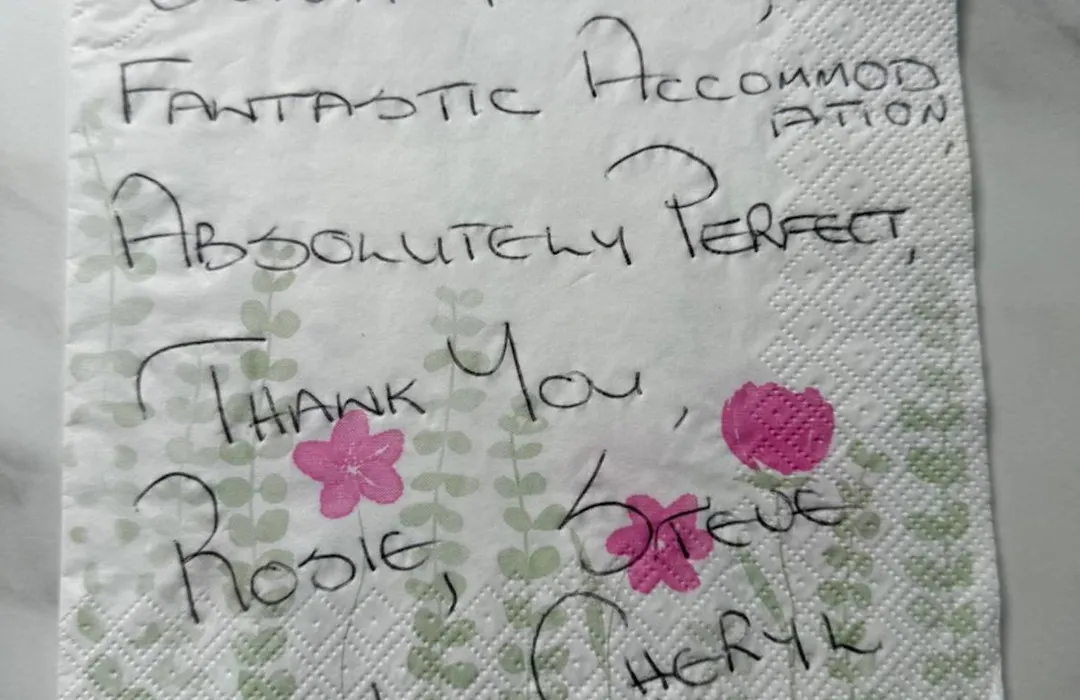 FANTASTIC ACCOMMOD
ATION,
ABSOLUTELY PERFECT,
THANK YOU,
ROSIE, STEVE
CHERYL